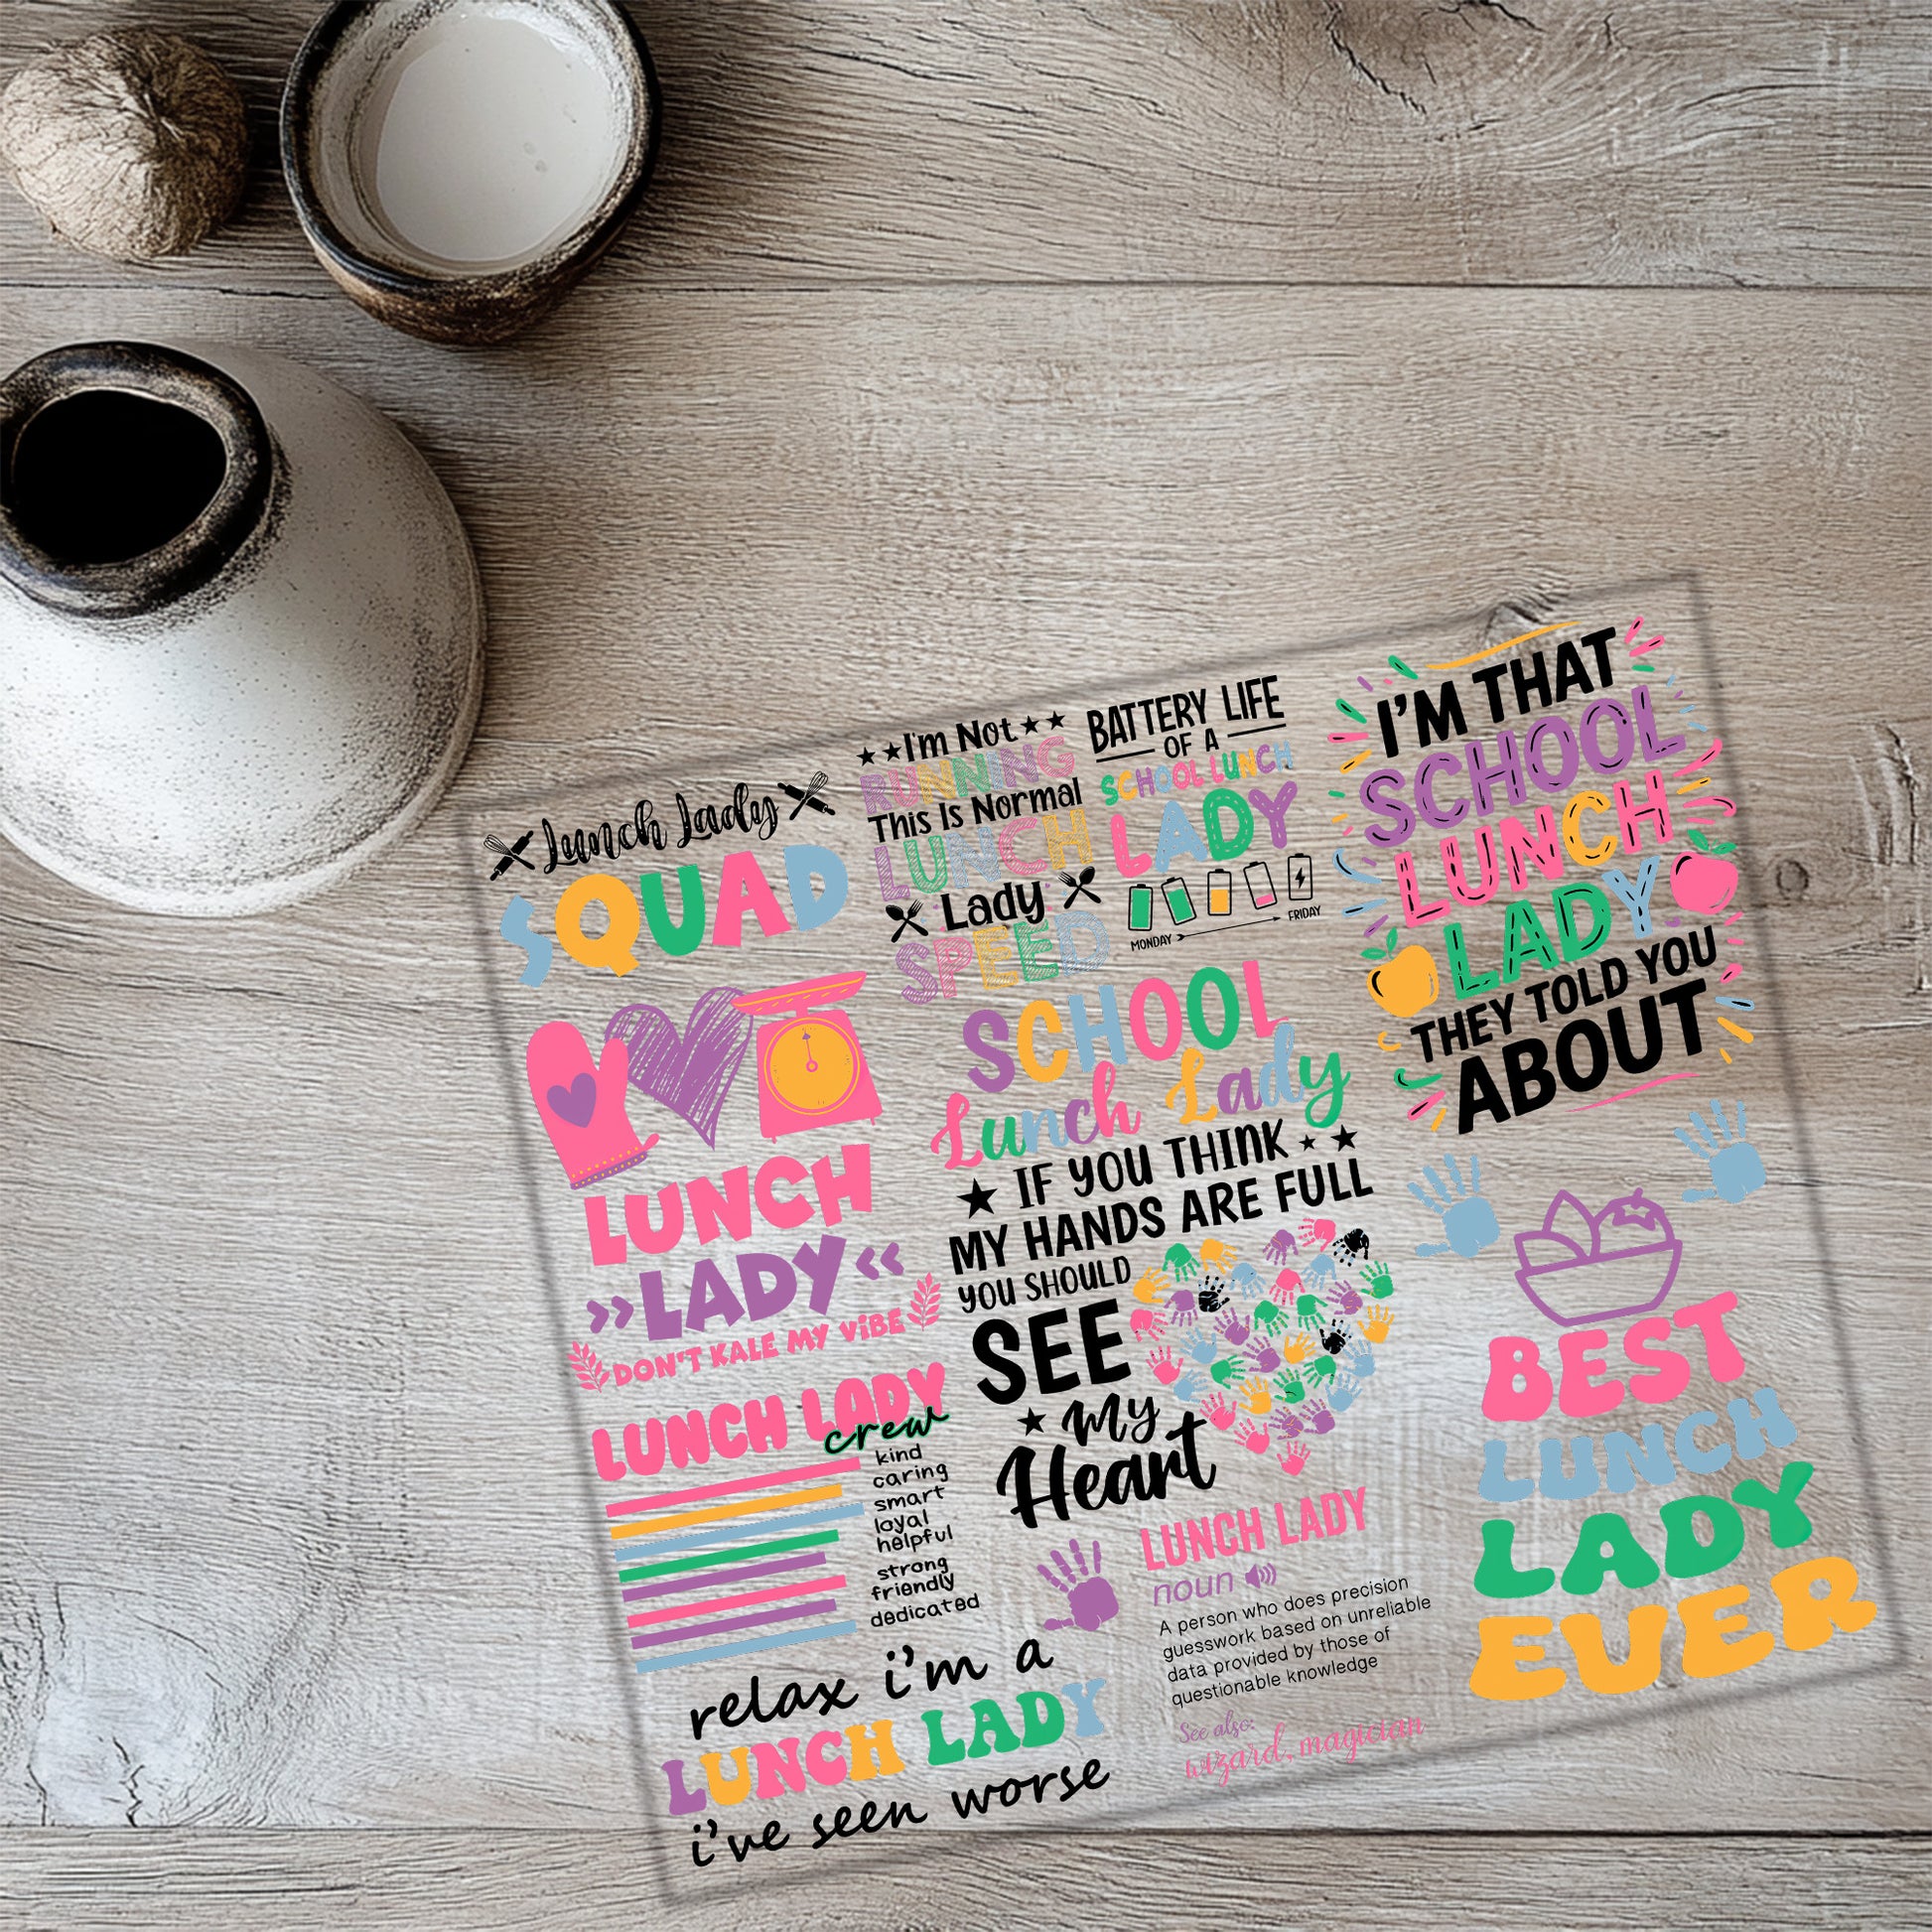 Lunch Lady
SQUAD
I'm Not
RUNNING
This Is Normal
LUNCH
Lady
SPEED
BATTERY LIFE
OF A
SCHOOL LUNCH
LADY
MONDAY
FRIDAY
I'M THAT
SCHOOL
LUNCH
LADY
THEY TOLD YOU
ABOUT
LUNCH
»LADY«
DON'T KALE MY VIBE
SCHOOL
Lunch Lady
IF YOU THINK
MY HANDS ARE FULL
YOU SHOULD
SEE
My
Heart
LUNCH LADY
crew
kind
caring
smart
loyal
helpful
strong
friendly
dedicated
relax i'm a
LUNCH LADY
i've seen worse
LUNCH LADY
noun
A person who does precision
guesswork based on unreliable
data provided by those of
questionable knowledge
See also:
wizard, magician
BEST
LUNCH
LADY
EVER